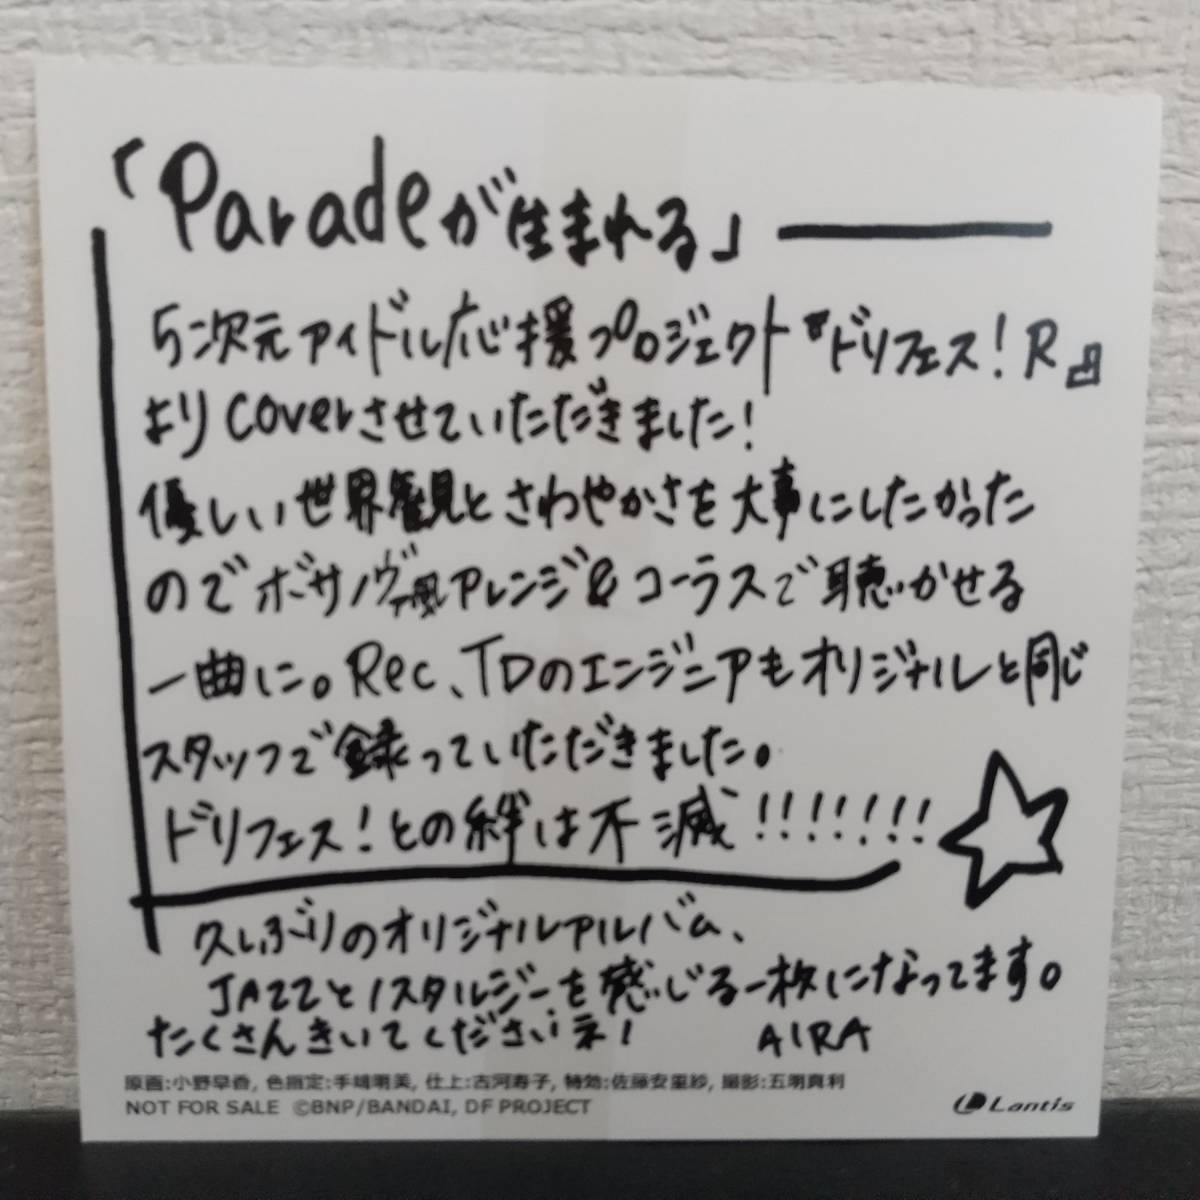 「Paradeが生まれる」
5次元アイドル応援プロジェクト『ドリフェス！R』
よりcoverさせていただきました！
優しい世界観とさわやかさを大事にしたかった
のでボサノヴァ風アレンジ&コーラスで聴かせる
一曲に。Rec、TDのエンジニアもオリジナルと同じ
スタッフで録っていただきました。
ドリフェス！との絆は不滅!!!!!!!
久しぶりのオリジナルアルバム、
JAZZとノスタルジーを感じる一枚になってます。
たくさんきいてくださいネ！ AIRA
原画:小野早香, 色指定:手嶋明美, 仕上:古河寿子, 特効:佐藤安里紗, 撮影:五明真利
NOT FOR SALE ©BNP/BANDAI, DF PROJECT
Lantis